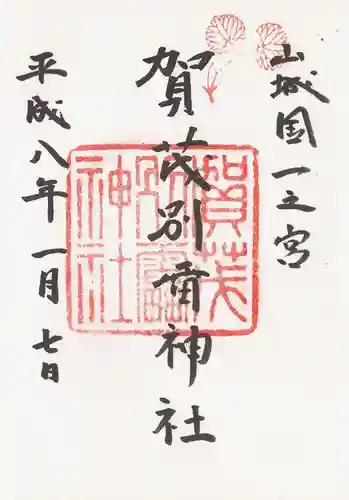 山城国一之宮
賀茂別雷神社
平成八年一月七日
賀茂
別雷
神社